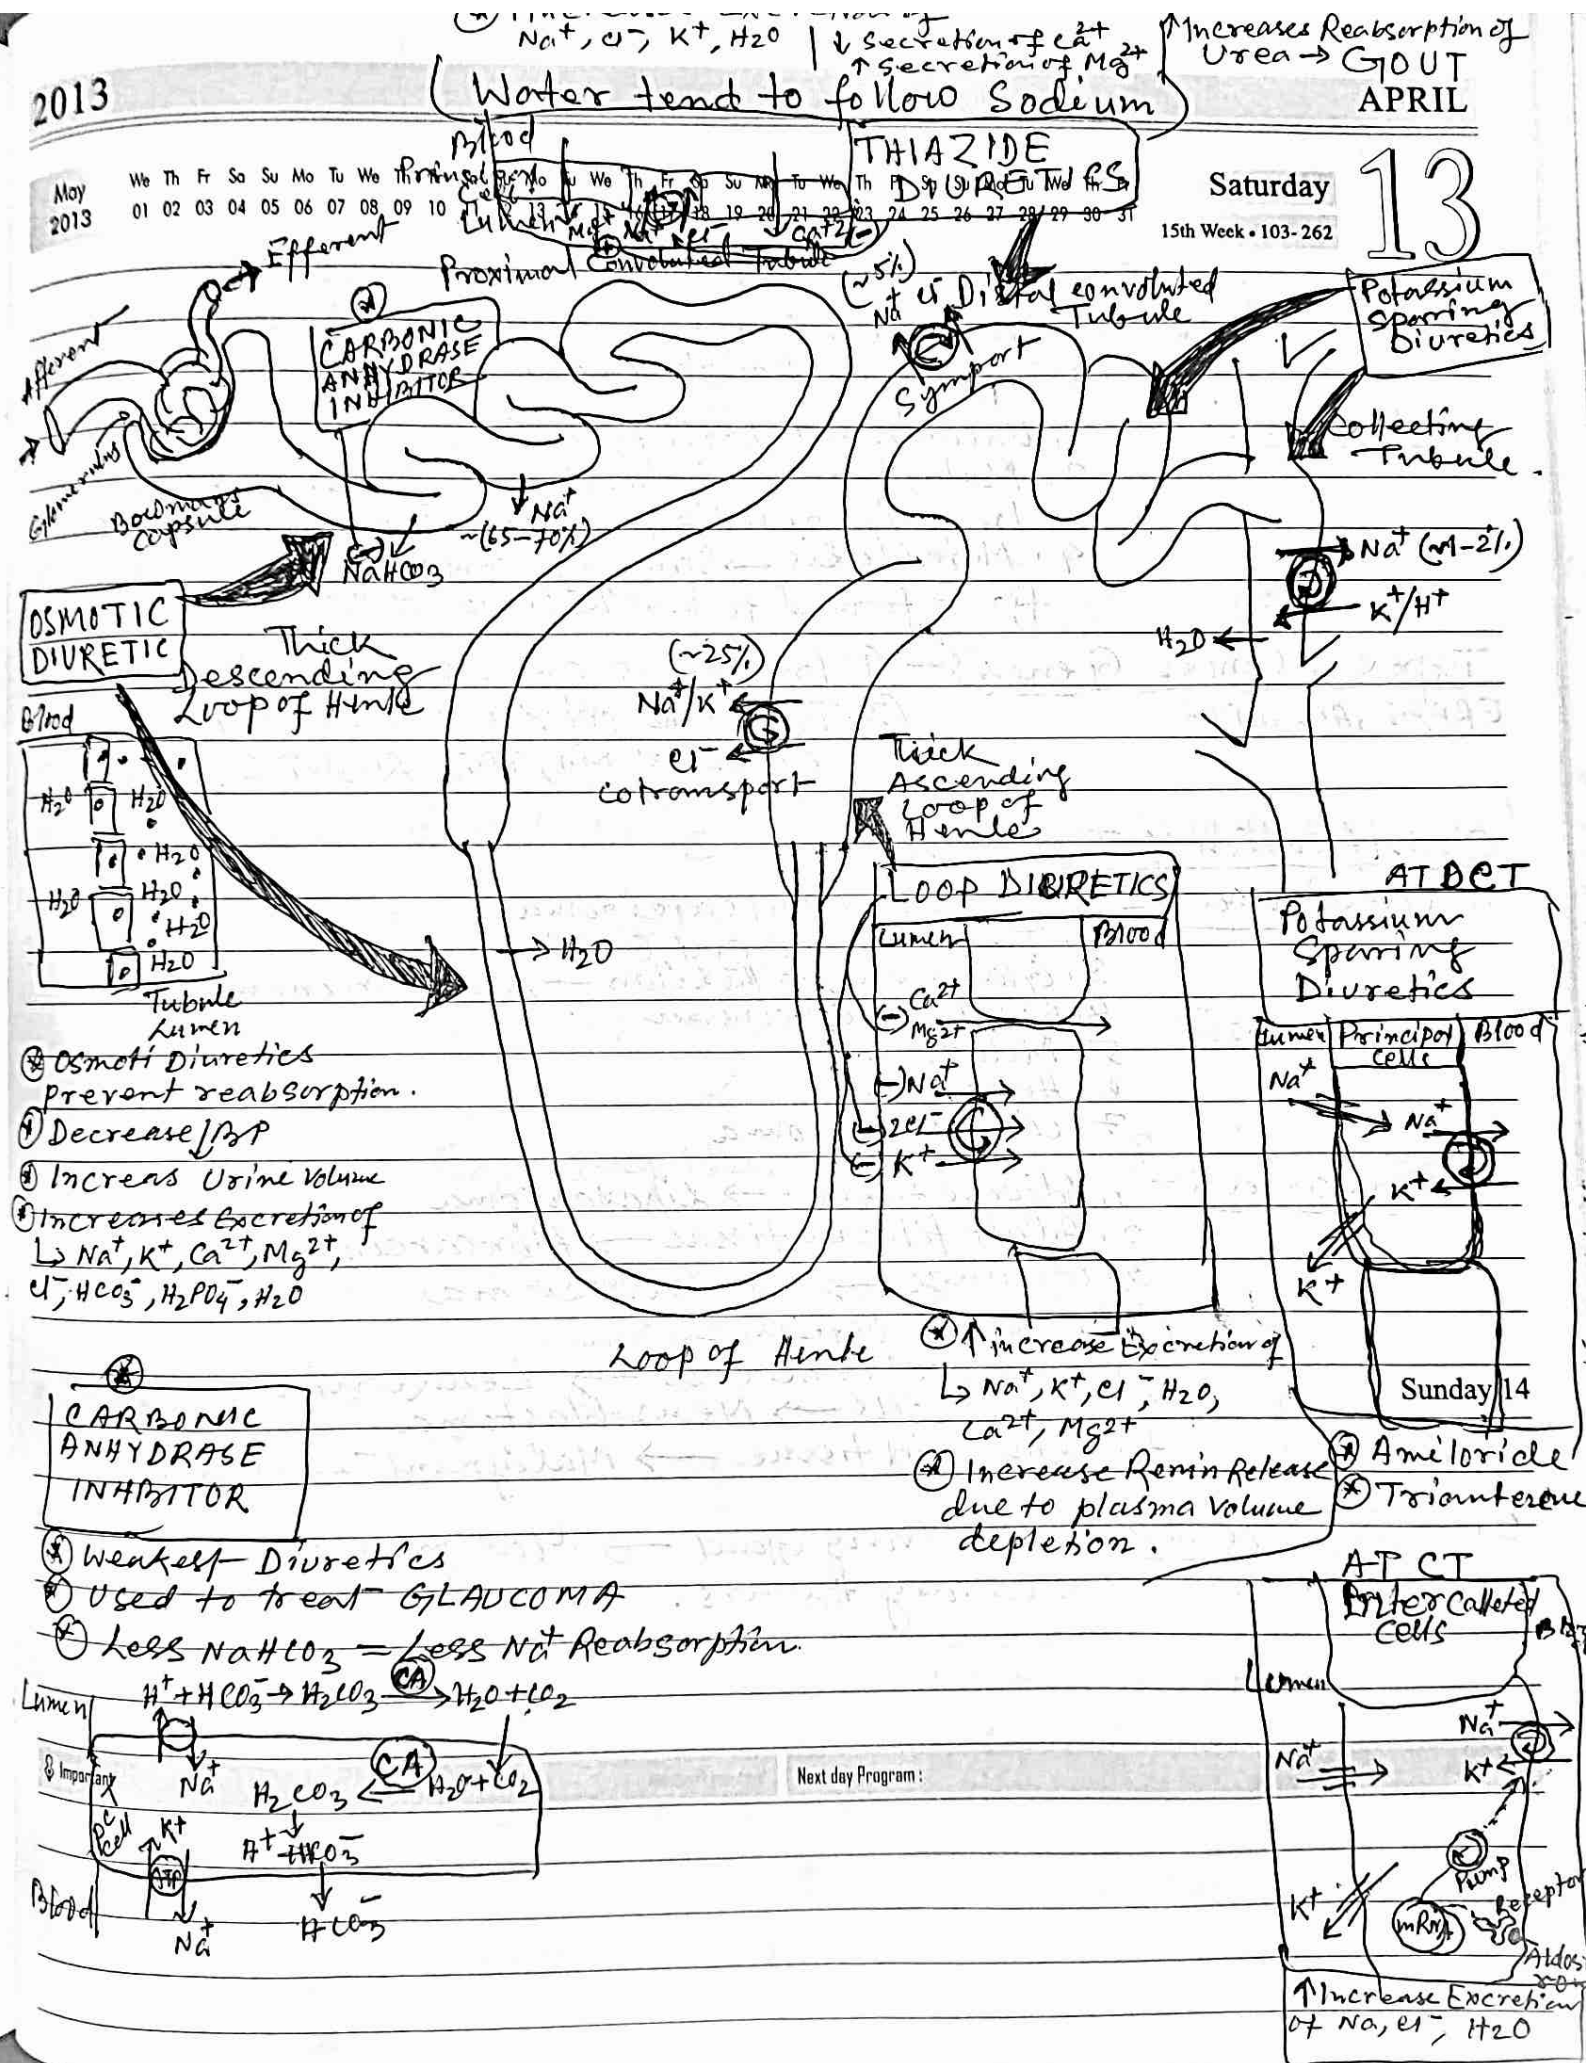 Na⁺, Cl⁻, K⁺, H2O
↓ Secretion of Ca²⁺
↑ Secretion of Mg²⁺
↑Increases Reabsorption of
Urea → GOUT
Water tend to follow Sodium
2013
APRIL
May
2013
We Th Fr Sa Su Mo Tu We
01 02 03 04 05 06 07 08 09 10
Saturday
13
15th Week • 103-262
Blood
Lumen
Mg²⁺ Na⁺ Cl⁻ Ca+2 (-)
THIAZIDE
DIURETICS
Proximal Convoluted Tubule
Efferent
Afferent
Glomerulus
Bowmans
Capsule
CARBONIC
ANHYDRASE
INHIBITOR
Na⁺
~(65-70%)
(-)
NaHCO3
(~5%)
Na⁺ Cl⁻
Distal convoluted
Tubule
Symport
Potassium
Sparring
Diuretics
Collecting
Tubule.
Na⁺ (~1-2%)
K⁺/H⁺
H2O
OSMOTIC
DIURETIC
Thick
Descending
Loop of Henle
(~25%)
Na⁺/K⁺
Cl⁻
cotransport
Thick
Ascending
Loop of
Henle
Blood
H2O H2O
H2O
H2O H2O
H2O
H2O
Tubule
Lumen
H2O
LOOP DIURETICS
Lumen Blood
(-) Ca²⁺
Mg2+
(-) Na⁺
(-) 2Cl⁻
(-) K⁺
AT DCT
Potassium
Sparring
Diuretics
Lumen Principal Blood
cells
Na⁺
Na⁺
K⁺
K+
Osmoti Diuretics
prevent reabsorption.
Decrease ↓BP
Increas Urine Volume
Increases Excretion of
↳ Na⁺, K⁺, Ca²⁺, Mg²⁺,
Cl⁻, HCO3⁻, H2PO4⁻, H2O
Loop of Henle
↑ increase Excretion of
↳ Na⁺, K⁺, Cl⁻, H2O,
Ca²⁺, Mg2+
Increase Renin Release
due to plasma volume
depletion.
Sunday 14
Amiloride
Triamterene
CARBONIC
ANHYDRASE
INHBITOR
Weakest Diuretics
Used to treat GLAUCOMA
Less NaHCO3 = Less Na⁺ Reabsorption.
Lumen
H⁺ + HCO3⁻ → H2CO3 CA → H2O + CO2
Important
Na⁺
H2CO3 ← CA H2O + CO2
PC
cell
K+
ATP
H⁺ HCO3⁻
Blood
Na⁺
HCO3⁻
Next day Program :
AT CT
Intercalleted
cells
Lumen
Na⁺
Na⁺
K+
K+
Pump
Receptor
mRNA
↑Increase Excretion
of Na, Cl⁻, H2O